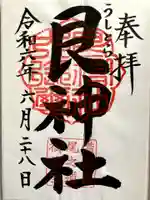 奉拝
うしとら
艮神社
令和六年六月二十八日